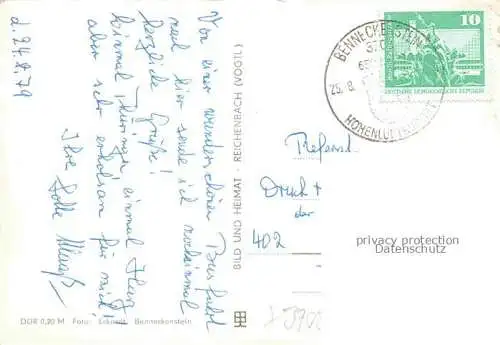 d. 24.8.79
Von einer wunderschönen Busfahrt
nach hier sende ich nocheinmal
herzliche Grüße!
Einmal Thüringen, einmal Harz,
aber sehr erholsam für mich!
Ihre Lotte
DDR 0,20 M Foto: Benneckenstein
BILD UND HEIMAT · REICHENBACH (VOGTL)
BENNECKENSTEIN
25. 8.
HÖHENLUFT
10
DEUTSCHE DEMOKRATISCHE REPUBLIK
Referat
Druck +
der
402
privacy protection
Datenschutz